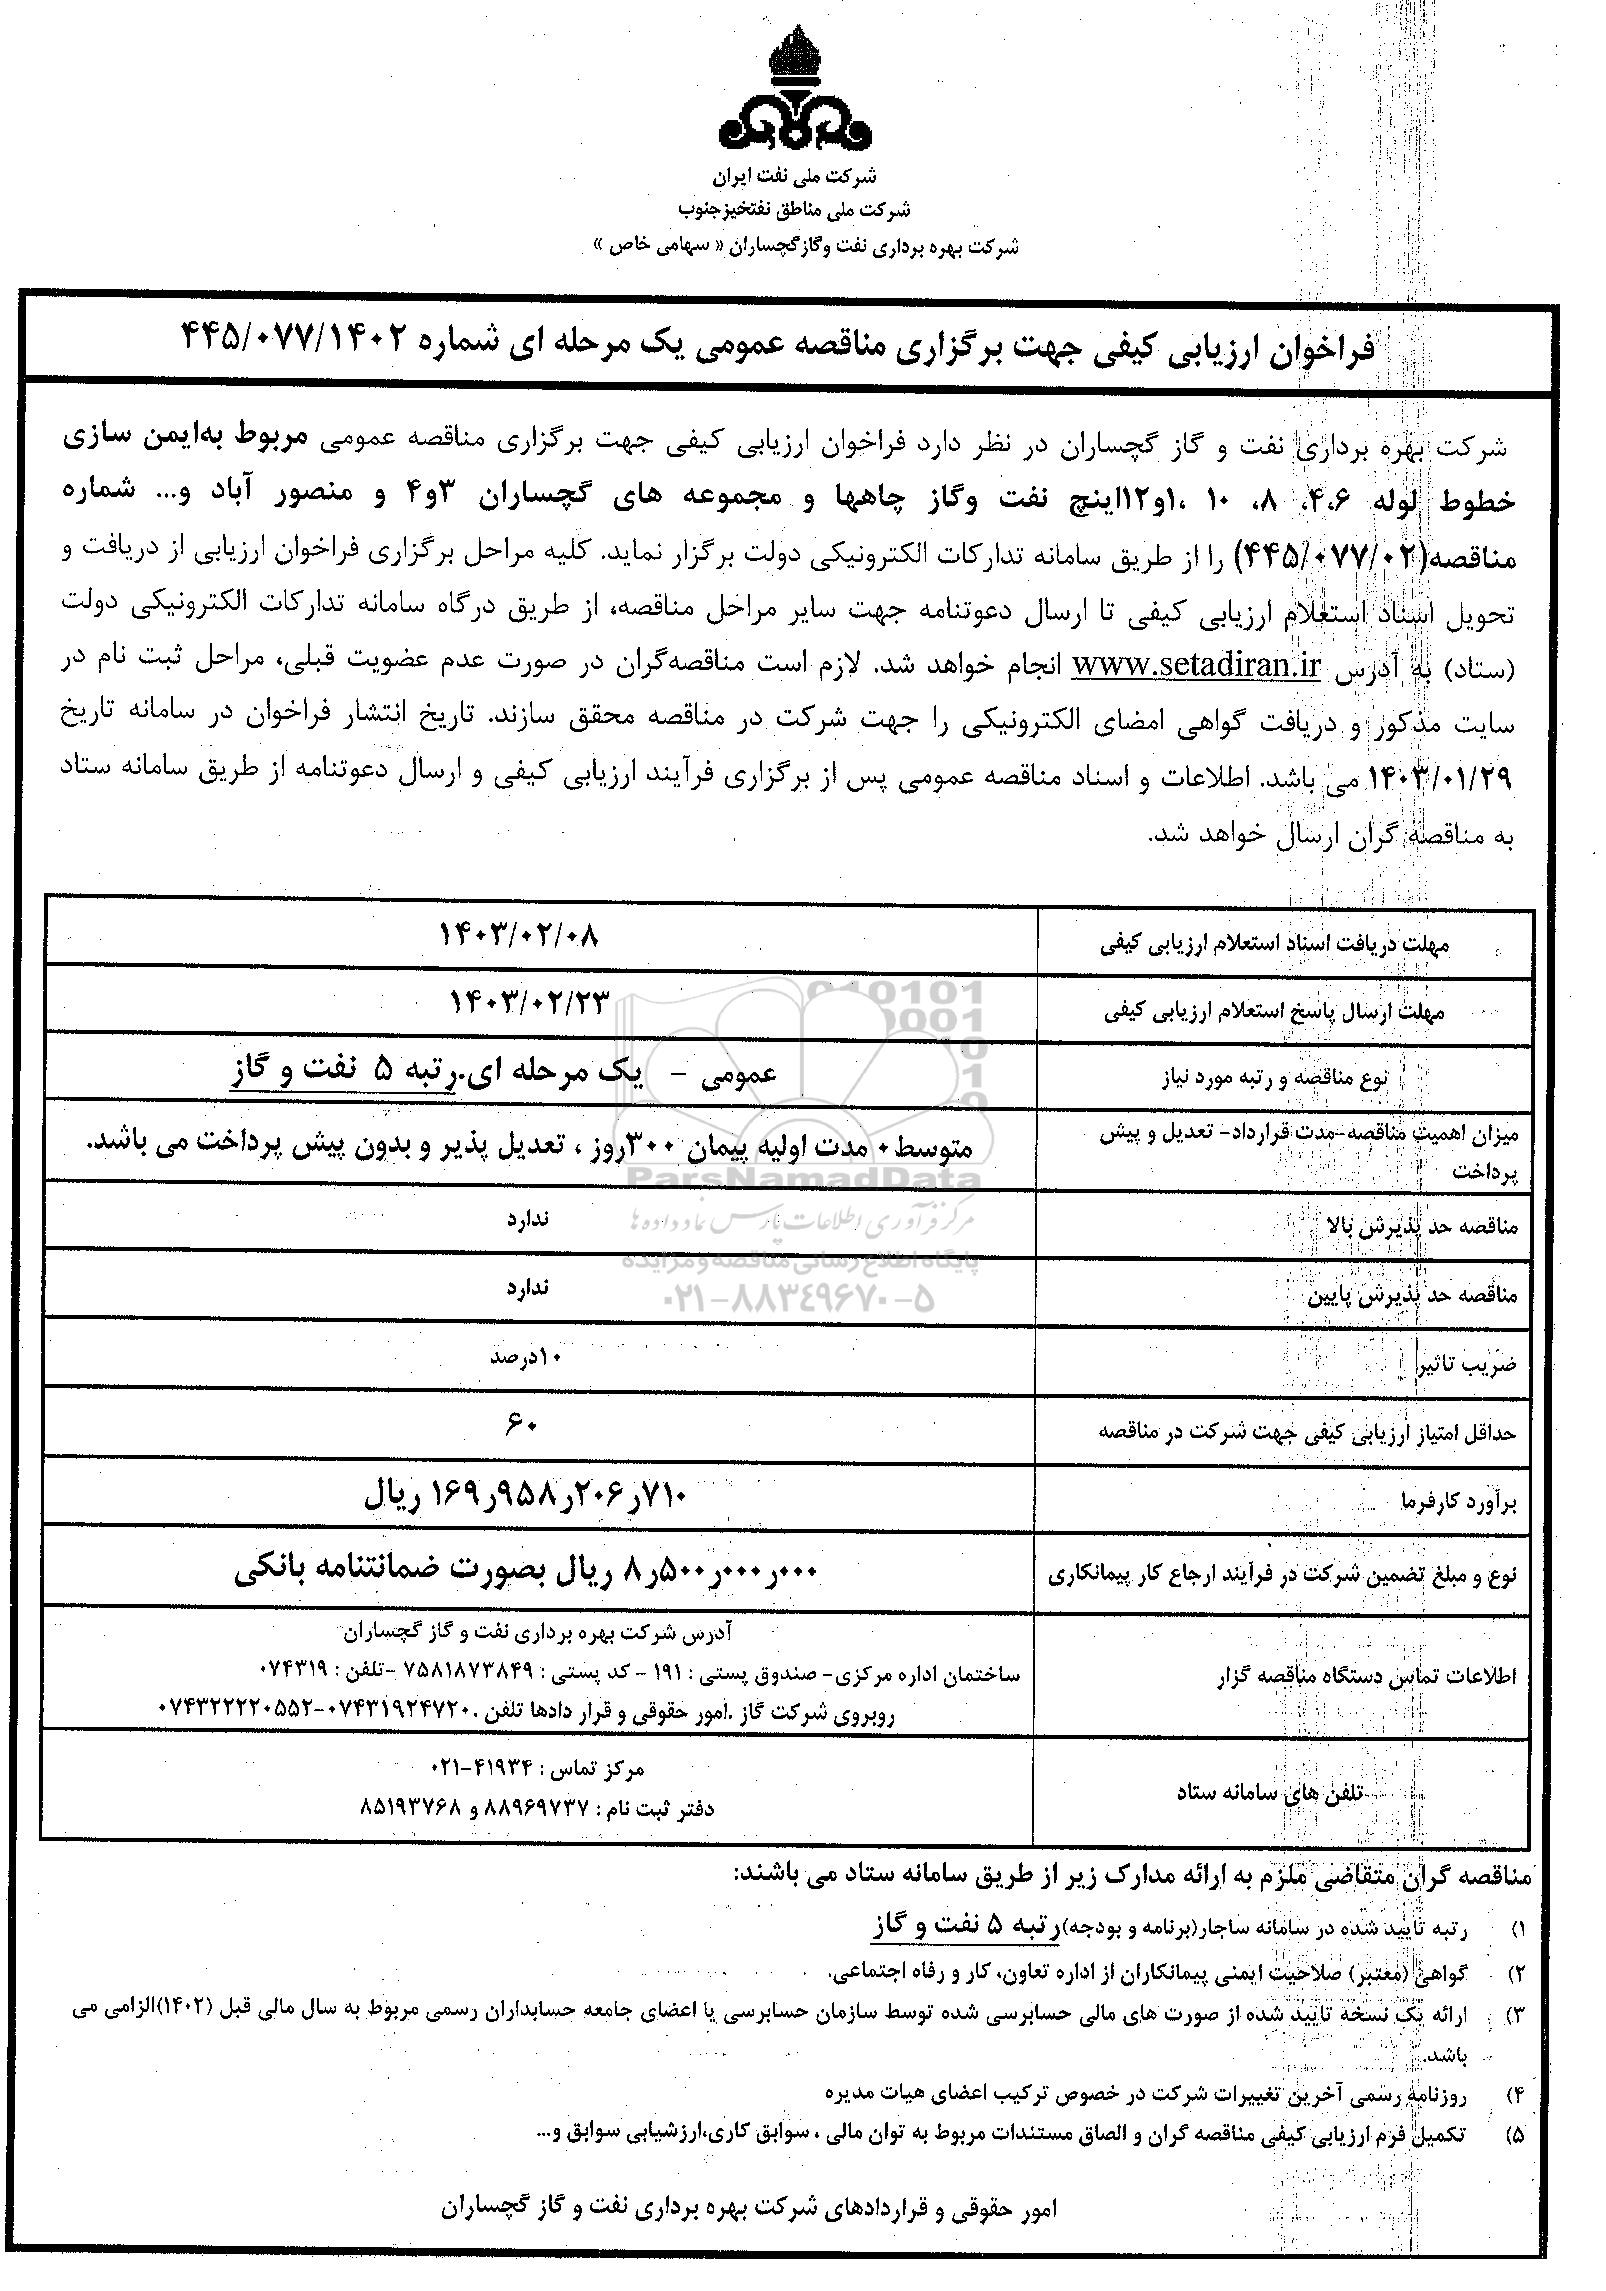 شرکت ملی نفت ایران
شرکت ملی مناطق نفتخیزجنوب
شرکت بهره برداری نفت وگازگچساران « سهامی خاص »
فراخوان ارزیابی کیفی جهت برگزاری مناقصه عمومی یک مرحله ای شماره ۴۴۵/۰۷۷/۱۴۰۲
شرکت بهره برداری نفت و گاز گچساران در نظر دارد فراخوان ارزیابی کیفی جهت برگزاری مناقصه عمومی مربوط به‌ایمن سازی
خطوط لوله ۴،۶، ۸، ۱۰ ،۱و۱۲اینچ نفت وگاز چاهها و مجموعه های گچساران ۳و۴ و منصور آباد و... شماره
مناقصه(۴۴۵/۰۷۷/۰۲) را از طریق سامانه تدارکات الکترونیکی دولت برگزار نماید. کلیه مراحل برگزاری فراخوان ارزیابی از دریافت و
تحویل اسناد استعلام ارزیابی کیفی تا ارسال دعوتنامه جهت سایر مراحل مناقصه، از طریق درگاه سامانه تدارکات الکترونیکی دولت
(ستاد) به آدرس www.setadiran.ir انجام خواهد شد. لازم است مناقصه‌گران در صورت عدم عضویت قبلی، مراحل ثبت نام در
سایت مذکور و دریافت گواهی امضای الکترونیکی را جهت شرکت در مناقصه محقق سازند. تاریخ انتشار فراخوان در سامانه تاریخ
۱۴۰۳/۰۱/۲۹ می باشد. اطلاعات و اسناد مناقصه عمومی پس از برگزاری فرآیند ارزیابی کیفی و ارسال دعوتنامه از طریق سامانه ستاد
به مناقصه گران ارسال خواهد شد.
مهلت دریافت اسناد استعلام ارزیابی کیفی
۱۴۰۳/۰۲/۰۸
مهلت ارسال پاسخ استعلام ارزیابی کیفی
۱۴۰۳/۰۲/۲۳
نوع مناقصه و رتبه مورد نیاز
عمومی - یک مرحله ای.رتبه ۵ نفت و گاز
میزان اهمیت مناقصه-مدت قرارداد- تعدیل و پیش
پرداخت
متوسط۰ مدت اولیه پیمان ۳۰۰روز ، تعدیل پذیر و بدون پیش پرداخت می باشد.
مناقصه حد پذیرش بالا
ندارد
مناقصه حد پذیرش پایین
ندارد
ضریب تاثیر
۱۰درصد
حداقل امتیاز ارزیابی کیفی جهت شرکت در مناقصه
۶۰
برآورد کارفرما
۱۶۹ر۹۵۸ر۲۰۶ر۷۱۰ ریال
نوع و مبلغ تضمین شرکت در فرآیند ارجاع کار پیمانکاری
۸ر۵۰۰ر۰۰۰ر۰۰۰ ریال بصورت ضمانتنامه بانکی
اطلاعات تماس دستگاه مناقصه گزار
آدرس شرکت بهره برداری نفت و گاز گچساران
ساختمان اداره مرکزی- صندوق پستی : ۱۹۱ - کد پستی : ۷۵۸۱۸۷۳۸۴۹ -تلفن : ۰۷۴۳۱۹
روبروی شرکت گاز .امور حقوقی و قرار دادها تلفن .۰۷۴۳۱۹۲۴۷۲۰-۰۷۴۳۲۲۲۰۵۵۲
تلفن های سامانه ستاد
مرکز تماس : ۴۱۹۳۴-۰۲۱
دفتر ثبت نام : ۸۸۹۶۹۷۳۷ و ۸۵۱۹۳۷۶۸
010101
ParsNamadData
مرکز فرآوری اطلاعات پارس نماد داده ها
پایگاه اطلاع رسانی مناقصه و مزایده
۰۲۱-۸۸۳۴۹۶۷۰-۵
مناقصه گران متقاضی ملزم به ارائه مدارک زیر از طریق سامانه ستاد می باشند:
۱) رتبه تایید شده در سامانه ساجار(برنامه و بودجه)رتبه ۵ نفت و گاز
۲) گواهی (معتبر) صلاحیت ایمنی پیمانکاران از اداره تعاون، کار و رفاه اجتماعی.
۳) ارائه یک نسخه تایید شده از صورت های مالی حسابرسی شده توسط سازمان حسابرسی یا اعضای جامعه حسابداران رسمی مربوط به سال مالی قبل (۱۴۰۲)الزامی می
باشد.
۴) روزنامه رسمی آخرین تغییرات شرکت در خصوص ترکیب اعضای هیات مدیره
۵) تکمیل فرم ارزیابی کیفی مناقصه گران و الصاق مستندات مربوط به توان مالی ، سوابق کاری،ارزشیابی سوابق و...
امور حقوقی و قراردادهای شرکت بهره برداری نفت و گاز گچساران